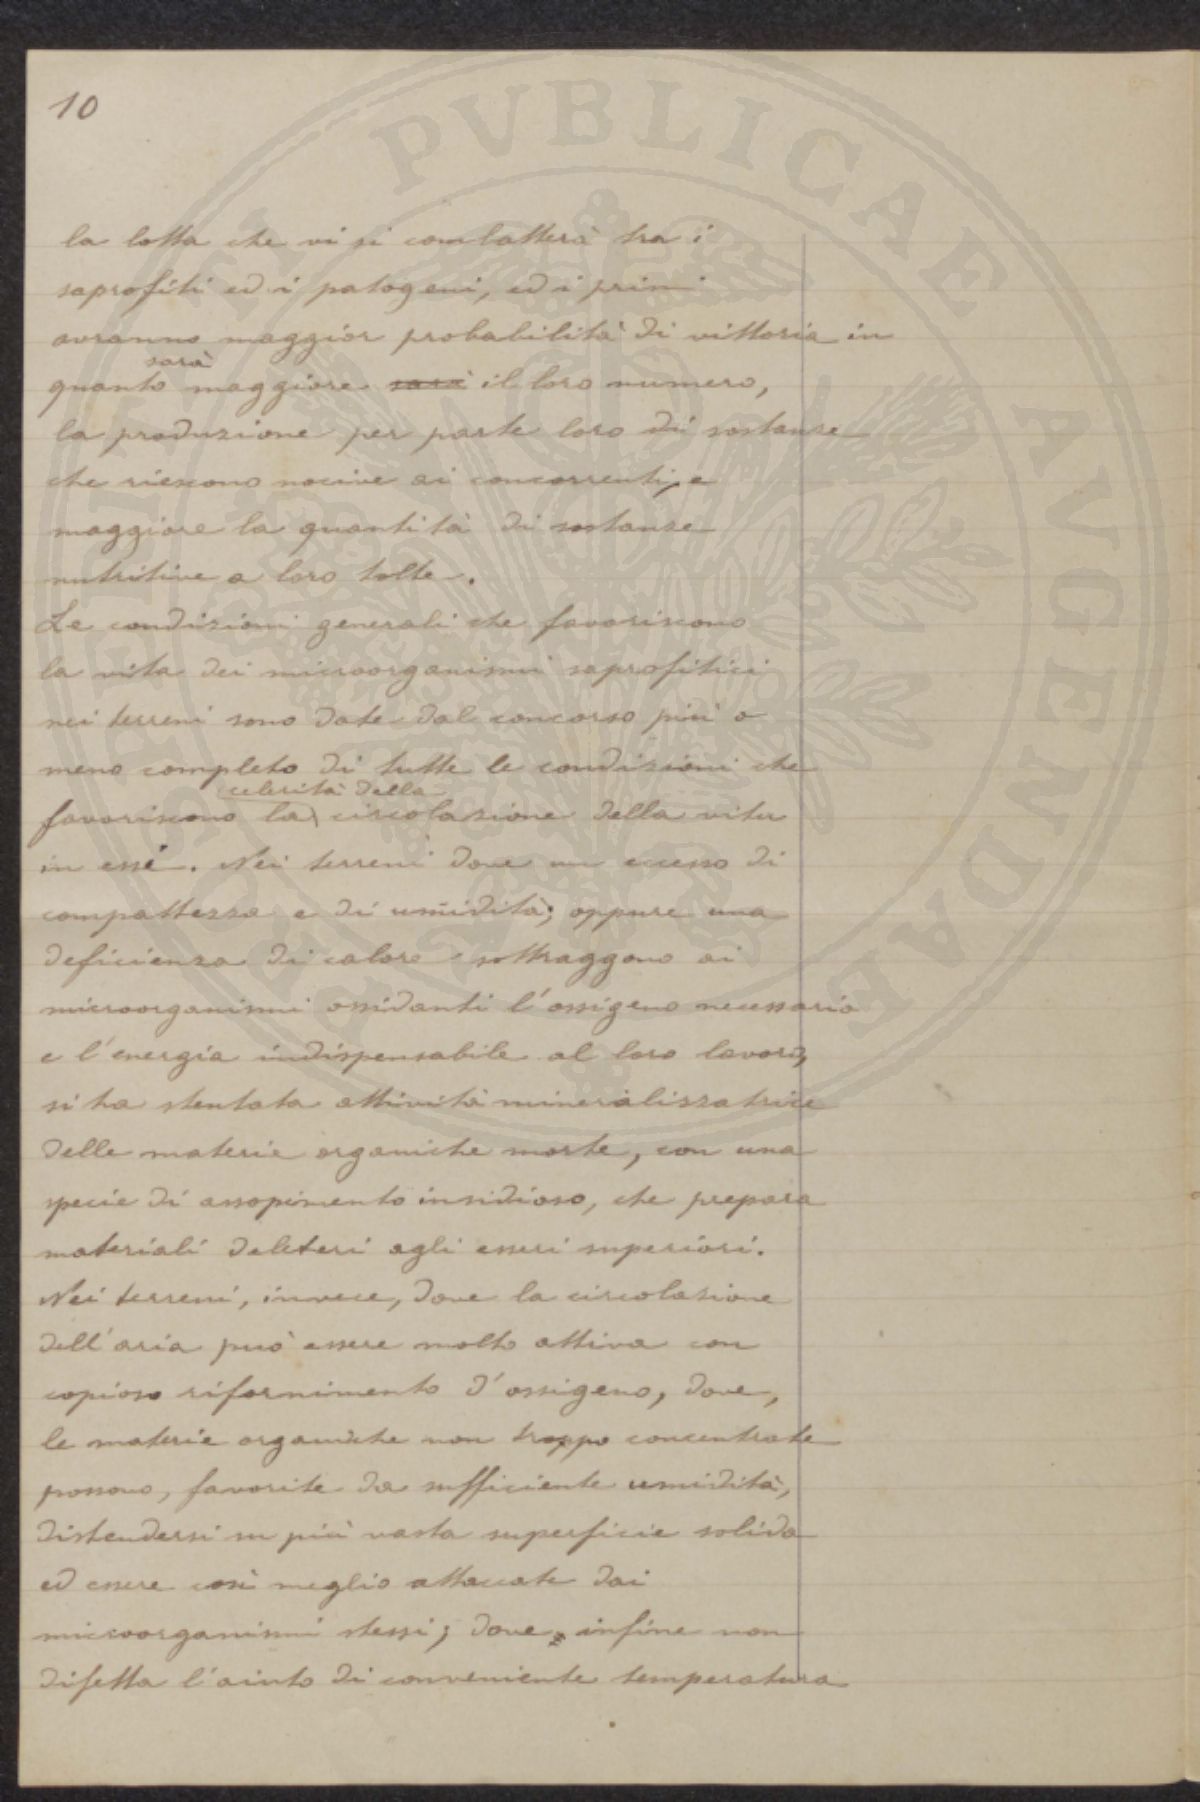 10
la lotta che vi si combatterà tra i
saprofiti ed i patogeni, ed i primi
avranno maggior probabilità di vittoria in
sarà
quanto maggiore sarà il loro numero,
la produzione per parte loro di sostanze
che riescono nocive ai concorrenti, e
maggiore la quantità di sostanze
nutritive a loro tolte.
Le condizioni generali che favoriscono
la vita dei microorganismi saprofitici
nei terreni sono date dal concorso più o
meno completo di tutte le condizioni che
celerità della
favoriscono la circolazione della vita
in essi. Nei terreni dove un eccesso di
compattezza e di umidità; oppure una
deficienza di calore sottraggono ai
microorganismi ossidanti l'ossigeno necessario
e l'energia indispensabile al loro lavoro,
si ha stentata attività mineralizzatrice
delle materie organiche morte, con una
specie di assopimento insidioso, che prepara
materiali deleteri agli esseri superiori.
Nei terreni, invece, dove la circolazione
dell'aria può essere molto attiva con
copioso rifornimento d'ossigeno, dove,
le materie organiche non troppo concentrate
possono, favorite da sufficiente umidità,
distendersi su più vasta superficie solida
ed essere così meglio attaccate dai
microorganismi stessi; dove, infine non
difetta l'aiuto di conveniente temperatura
PVBLICAE AVGENDAE